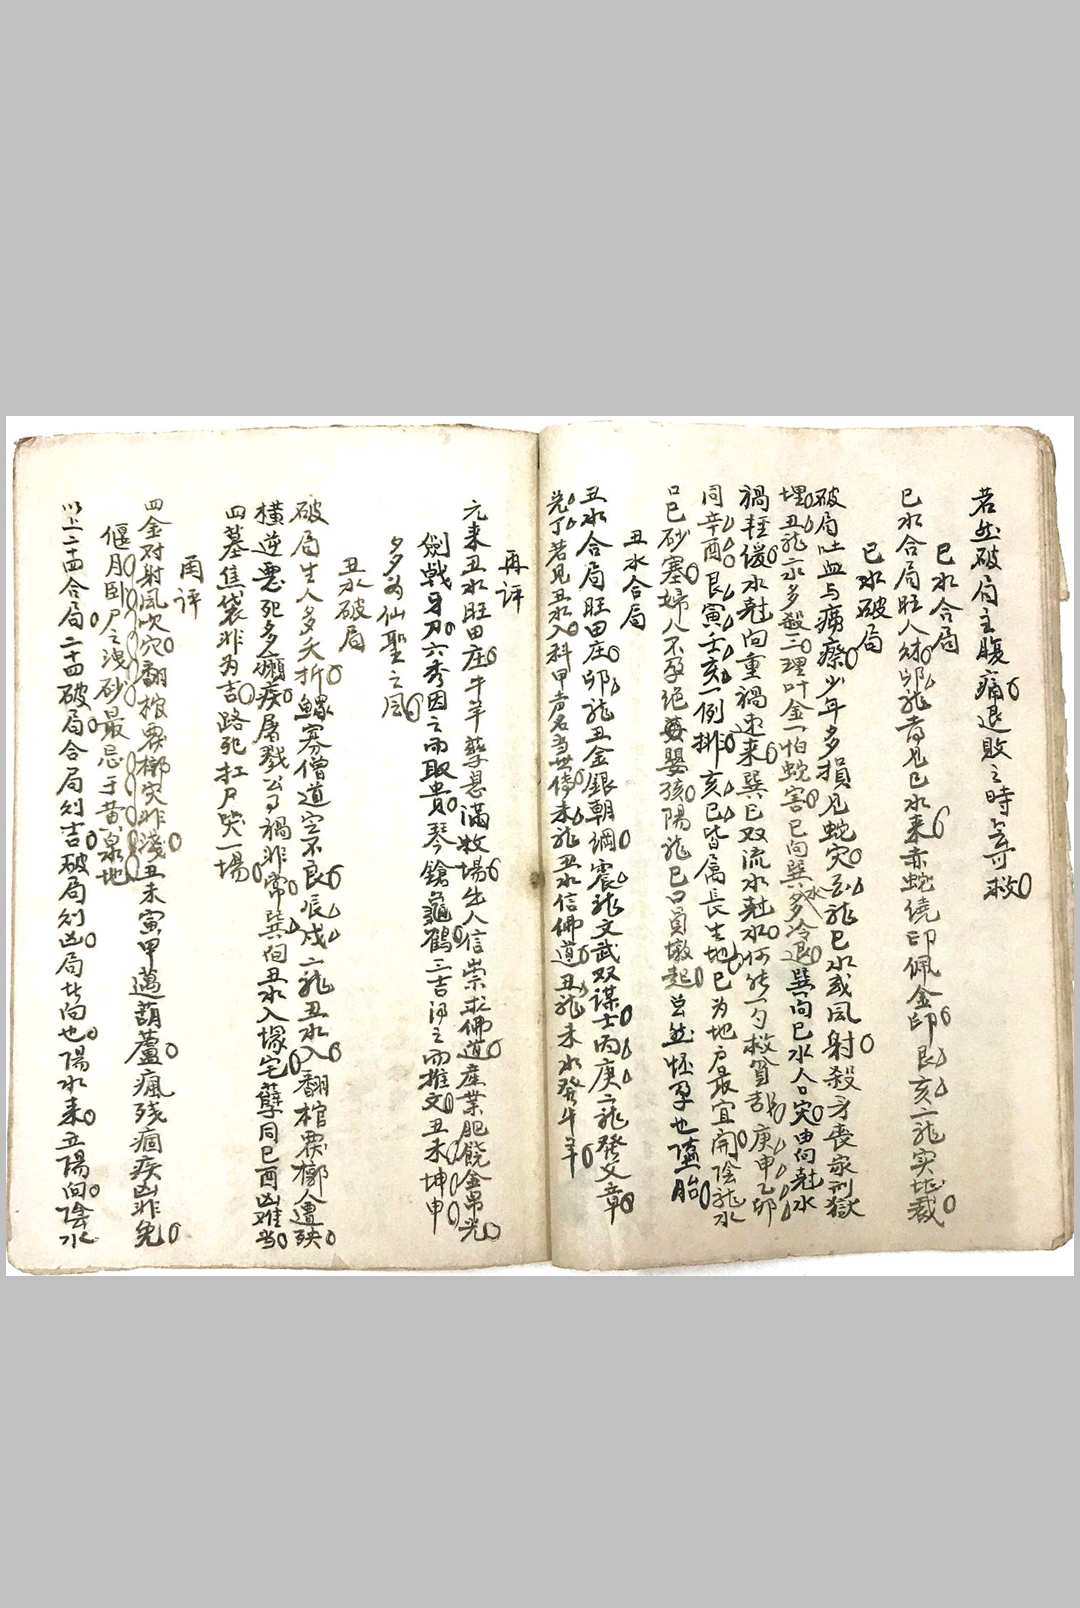 若然破局主腹痛退敗之時等救
巳水合局
巳水合局旺人財卯龍者見巳水来赤蛇繞印佩金印艮亥二龍实堪裁
巳水破局
破局吐血与癆瘵少年多損見蛇灾 龍巳水或風射殺 丧家刑獄
埋丑龍 水多殺三理叶金一怕蛇害巳向巽水多冷退巽向巳水人口灾由向尅水
禍輕缓水尅向重禍速来巽巳双流水尅水何能一勺救 庚甲乙卯
同辛酉艮寅壬亥一例排亥巳皆属長生地巳为地户最宜開陰龍水
口巳砂塞婦人不孕绝 嬰孩陽龍巳口負墩起 然怀孕也墮胎
丑水合局
丑水合局旺田庄卯龍丑金銀朝綱震龍文武双謀士丙庚二龍發文章
兑丁若見丑水入科甲声名 未龍丑水信佛道丑龍未水發牛羊
再評
元来丑水旺田庄牛羊 满牧場生人信崇求佛道產業肥饒金帛光
劍戟牙刀六秀因之而取貴琴鎗龜鶴三吉 之而推文丑未坤申
多为仙聖之風
丑水破局
破局生人多夭折鰥寡僧道空不良辰戌二龍丑水入翻棺覆槨人遭殃
横逆悪死多瘋疾屠戮 禍非常巽向丑水入塚宅孽同巳酉凶难当
四墓焦袋非为吉路死扛尸哭一場
再評
四金对射風吹穴翻棺覆槨灾非淺丑未寅甲邁葫蘆瘋残痼疾凶非免
偃月卧尸之洩砂最忌于黄泉地
以上二十四合局二十四破局合局則吉破局則凶局 向也陽水来立陽向陰水